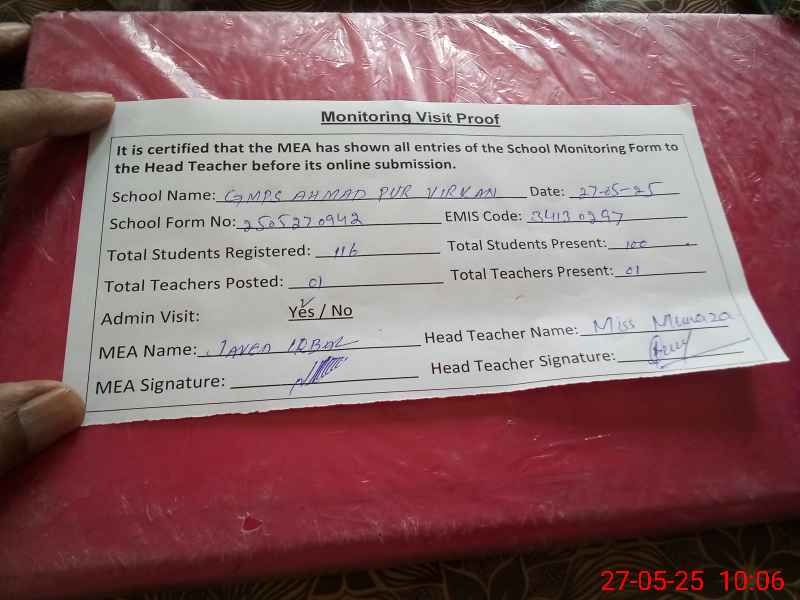 Monitoring Visit Proof
It is certified that the MEA has shown all entries of the School Monitoring Form to
the Head Teacher before its online submission.
School Name: GMPS AHMAD PUR VIRKAN Date: 27-05-25
School Form No: 2505270942 EMIS Code: 34130297
Total Students Registered: 116 Total Students Present: 100
Total Teachers Posted: 01 Total Teachers Present: 01
Admin Visit: Yes / No
MEA Name: JAVED IQBAL Head Teacher Name: Miss
MEA Signature: Head Teacher Signature:
27-05-25 10:06